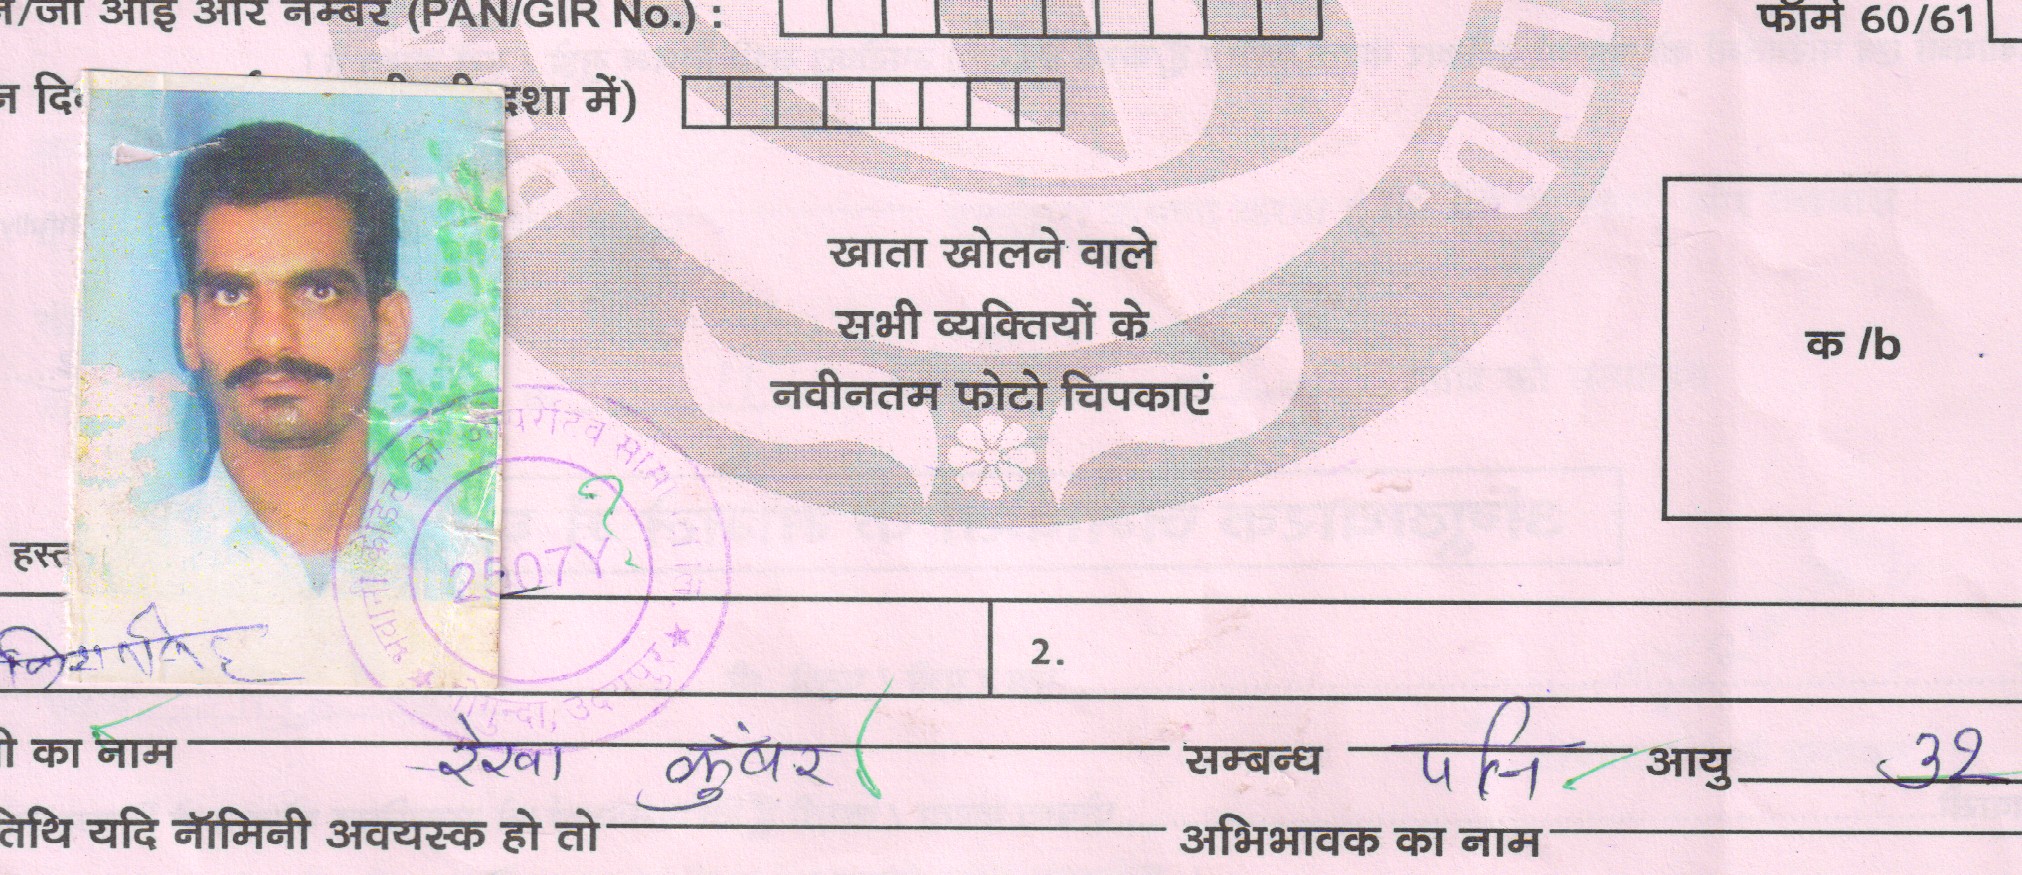 /जी आई आर नम्बर (PAN/GIR No.) :
फॉर्म 60/61
न दि
दशा में)
LTD.
खाता खोलने वाले
सभी व्यक्तियों के
नवीनतम फोटो चिपकाएं
क /b
हस्त
2507Y
गोगुन्दा, उदयपुर
2.
ी का नाम रेखा कुंवर सम्बन्ध पत्नि आयु 32
तिथि यदि नॉमिनी अवयस्क हो तो अभिभावक का नाम